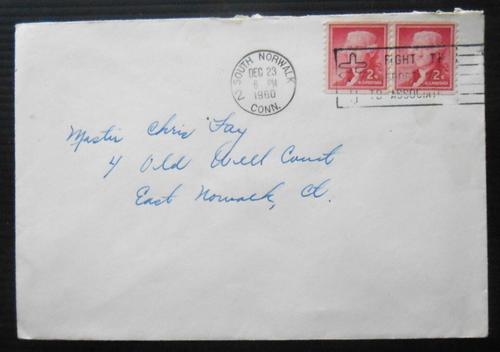 SOUTH NORWALK
2
DEC 23
6 PM
1960
CONN.
2¢ 2¢
FIGHT TB
TB ASSOCIATI
Master Chris Fay
4 Old Well Court
East Norwalk, Ct.